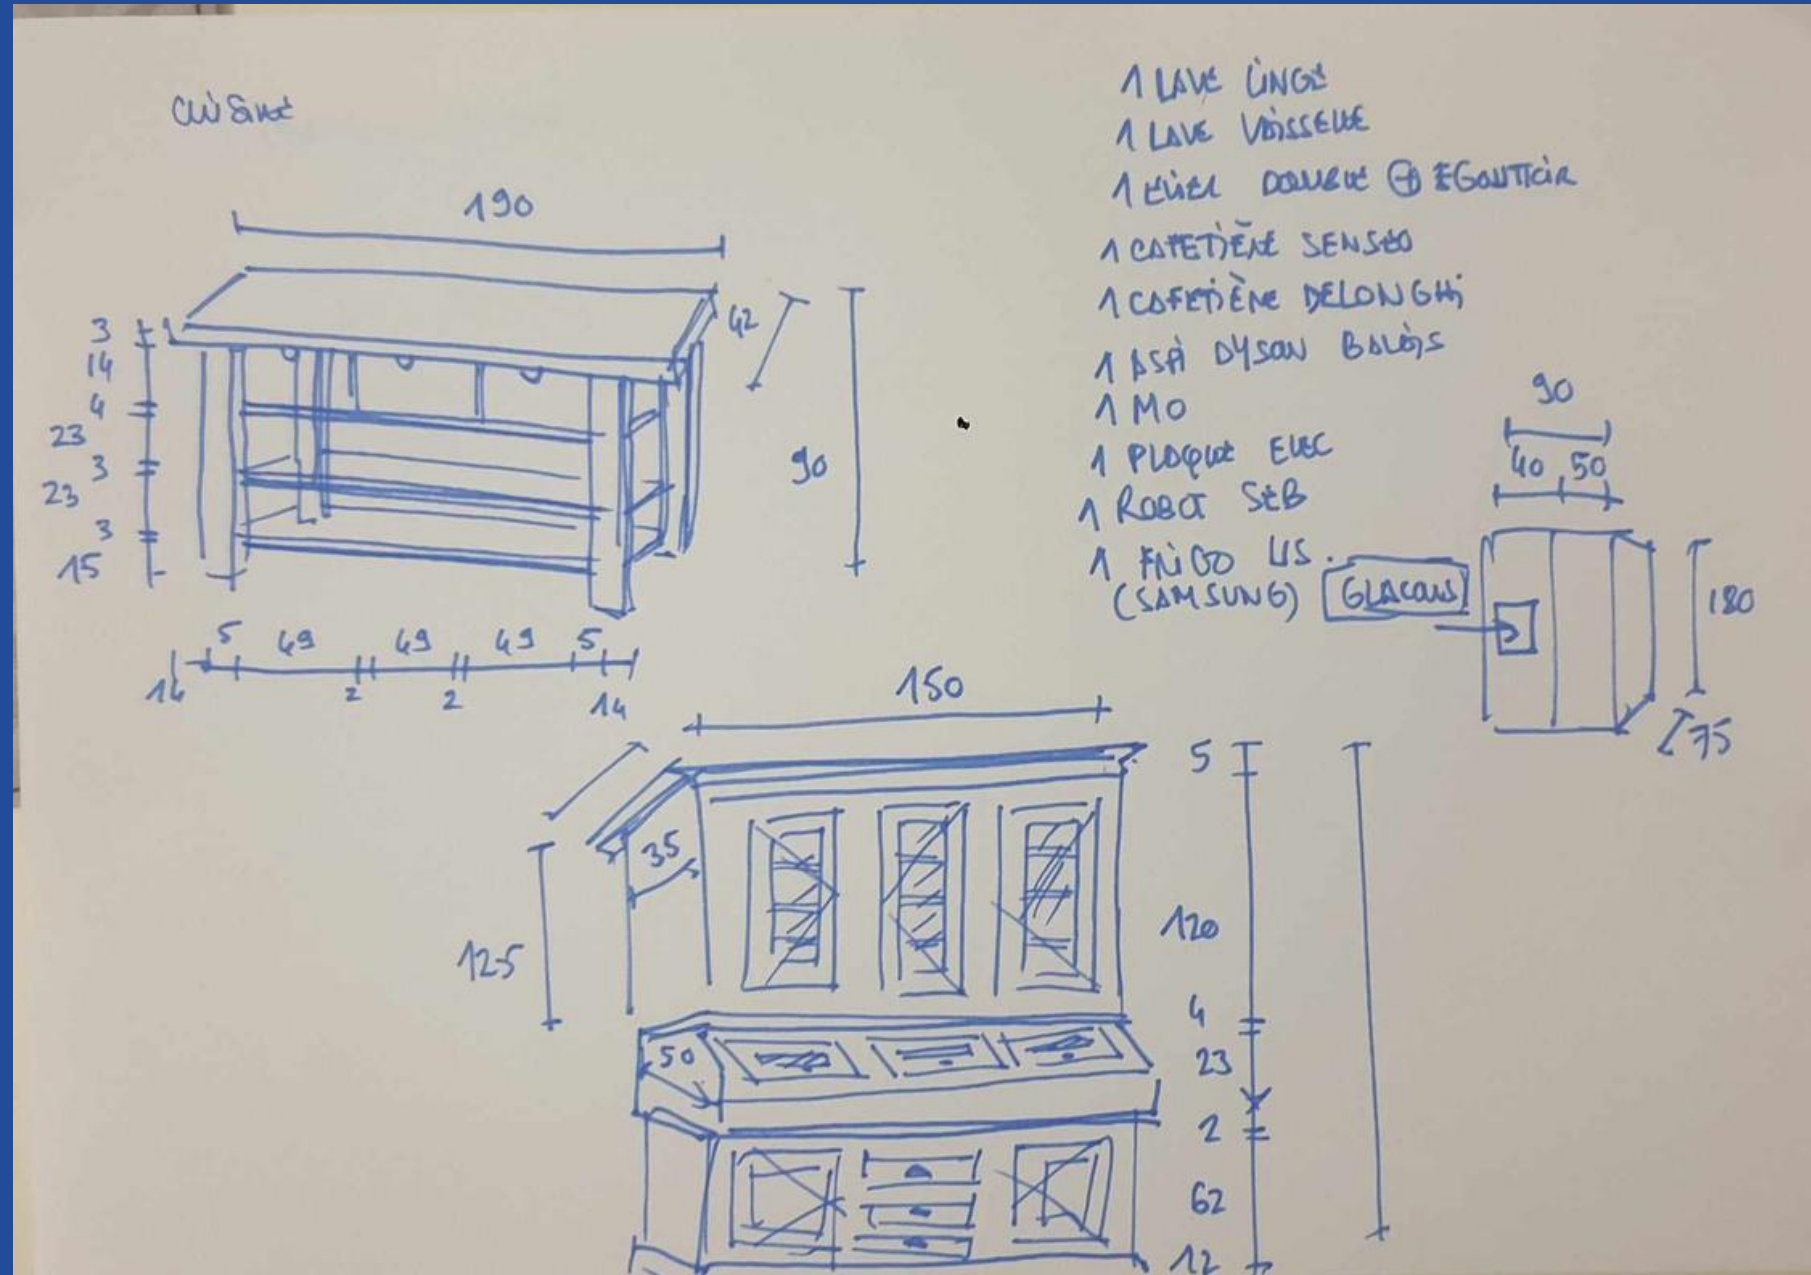 CUISINE
190
42
90
3
14
4
23
3
23
3
15
5 49 49 49 5
14 2 2 14
1 LAVE LINGE
1 LAVE VAISSELLE
1 EVIER DOUBLE + EGOUTTOIR
1 CAFETIÈRE SENSEO
1 CAFETIÈRE DELONGHi
1 ASPi DYSON BALAIS
1 MO
1 PLAQUE ELEC
1 ROBOT SEB
1 FRIGO US.
(SAMSUNG) GLACONS
90
40 50
180
75
150
35
125
50
5
120
4
23
2
62
12